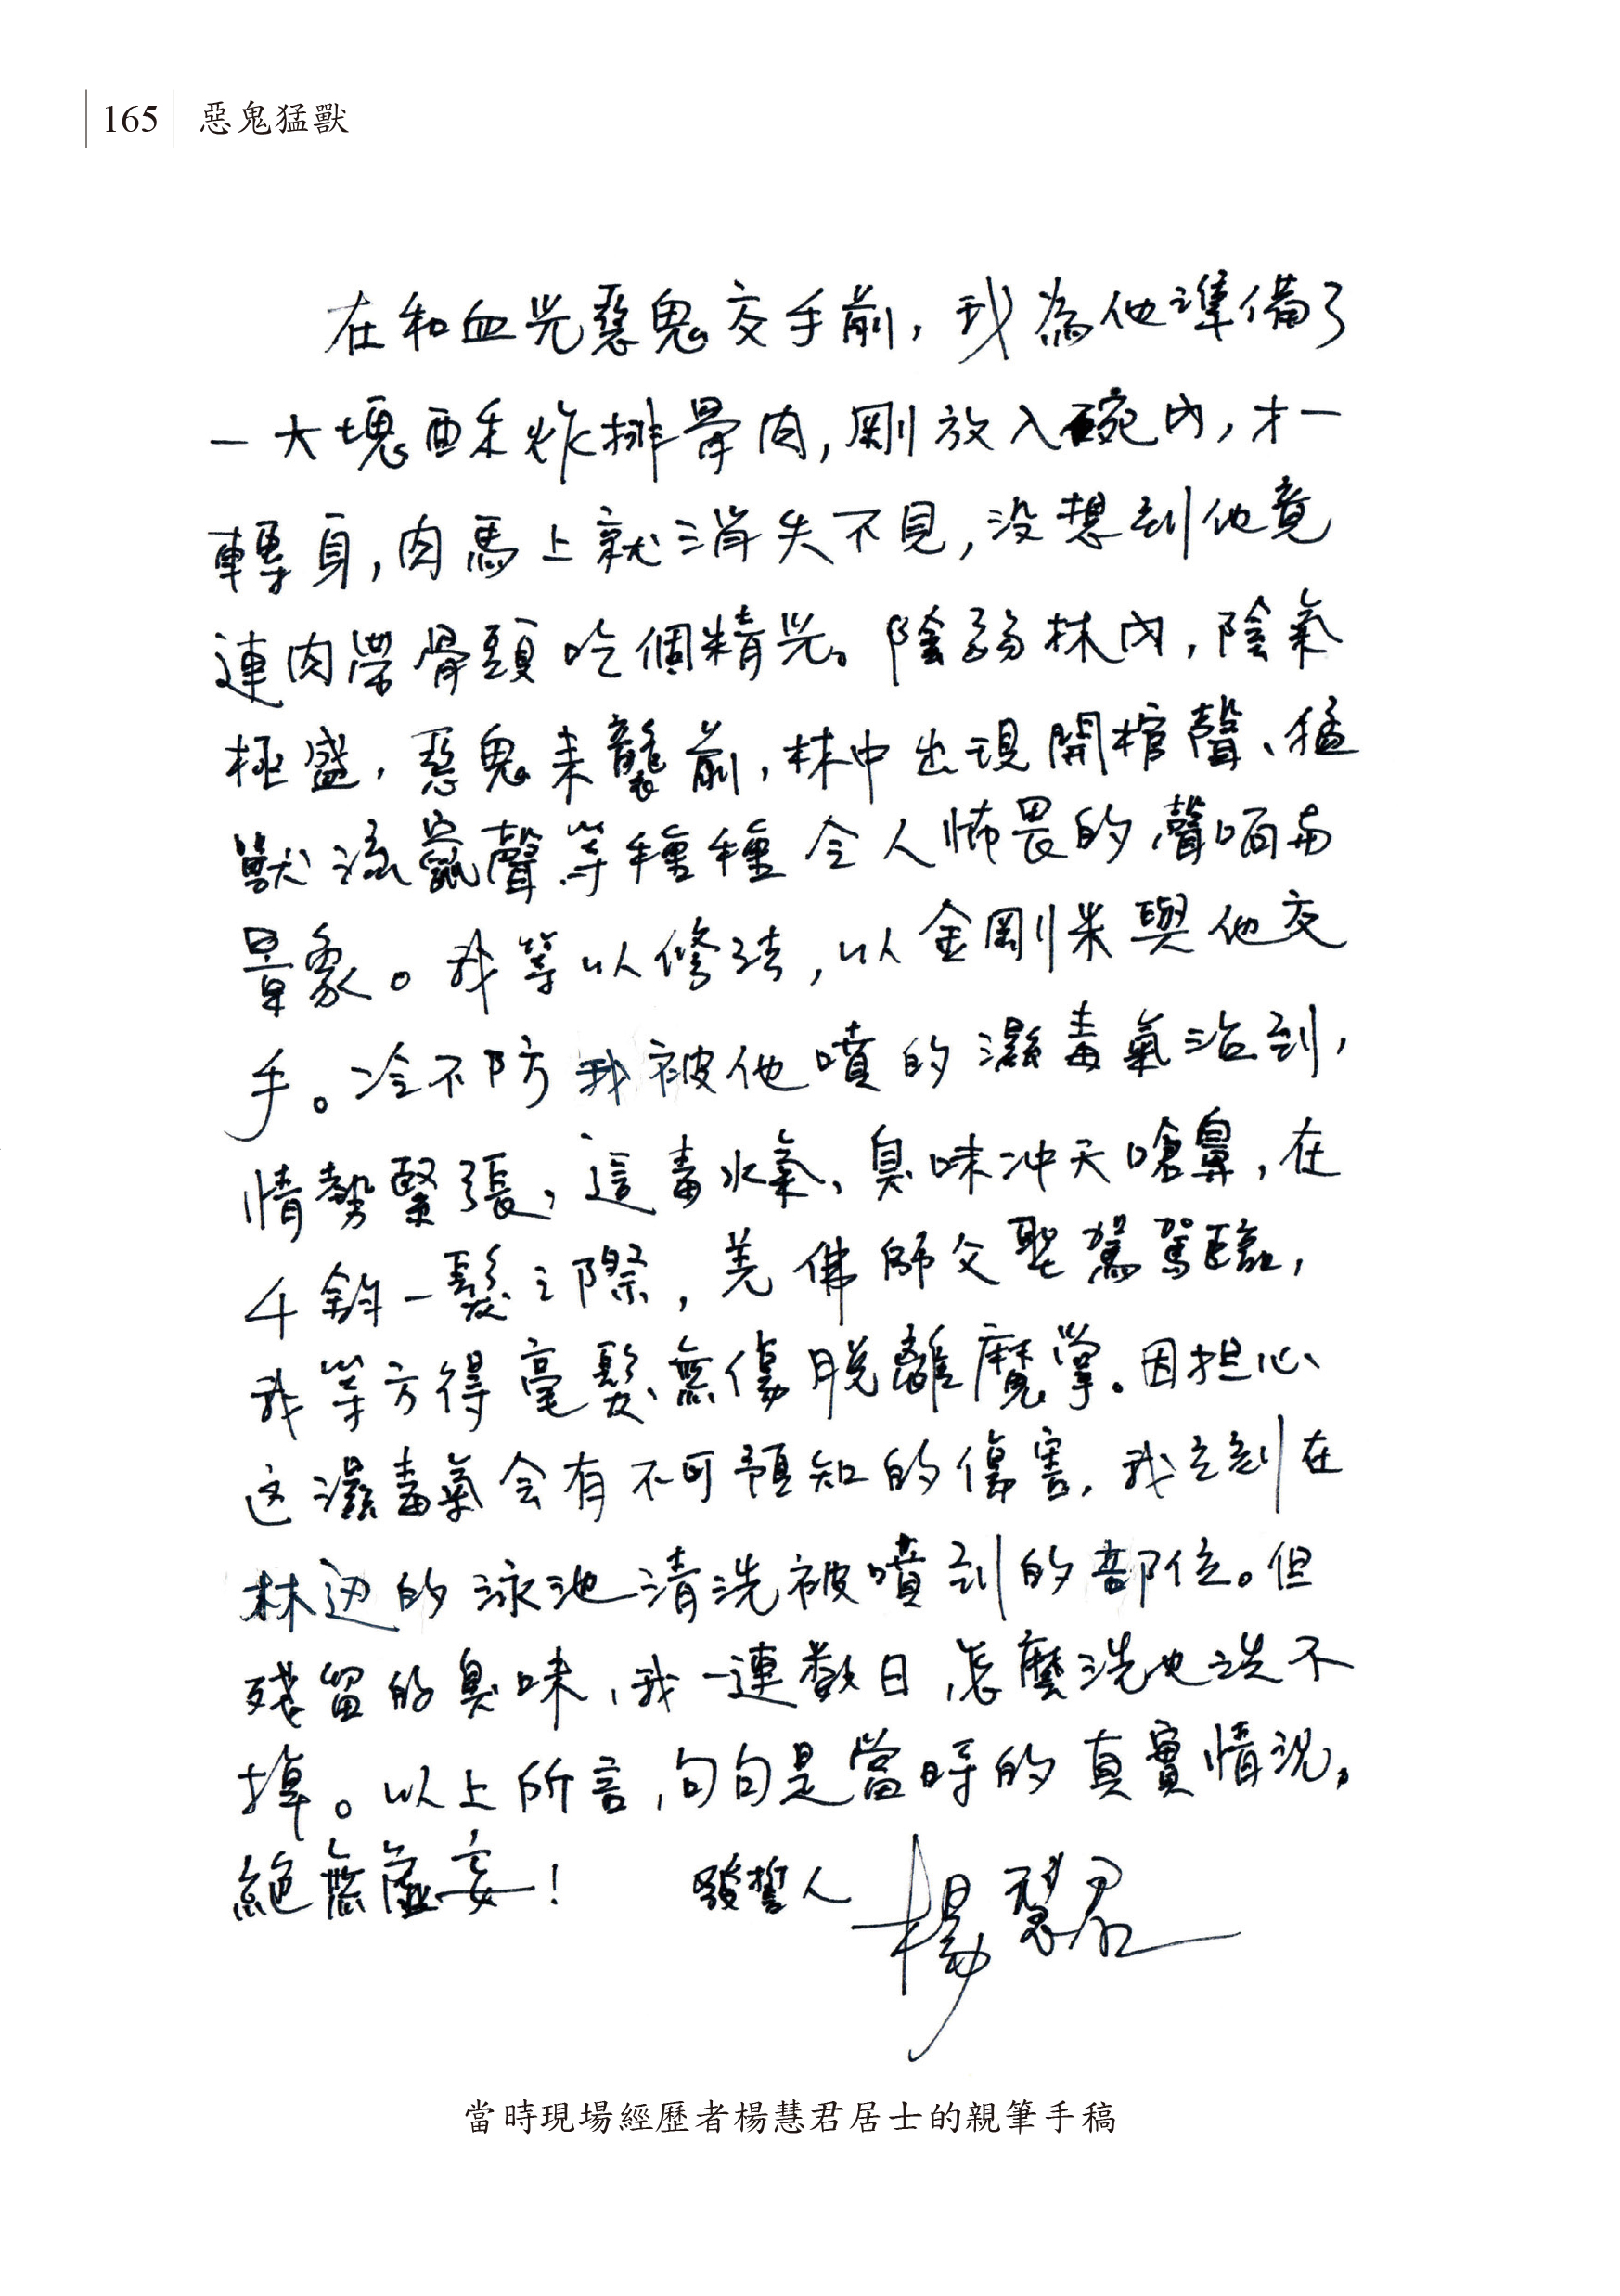 165 惡鬼猛獸
在和血光惡鬼交手前，我為他準備了
一大塊酥炸排骨肉，剛放入碗內，才一
轉身，肉馬上就消失不見，没想到他竟
連肉帶骨頭吃個精光。陰弱林內，陰氣
極盛，惡鬼未襲前，林中出現開棺聲、猛
獸流竄聲等種種令人怖畏的聲响与
景象。我等以修法，以金剛米與他交
手。冷不防我被他噴的濕毒氣沾到，
情勢緊張，這毒水氣，臭味冲天嗆鼻，在
千鈞一髮之際，羌佛師父聖駕駕臨，
我等方得毫髮無傷脫離魔掌。因担心
这濕毒氣会有不可預知的傷害，我立刻在
林边的泳池清洗被噴到的部位。但
殘留的臭味，我一連數日，怎麼洗也洗不
掉。以上所言，句句是當時的真實情況，
絕無虛妄！ 發誓人 楊慧君
當時現場經歷者楊慧君居士的親筆手稿